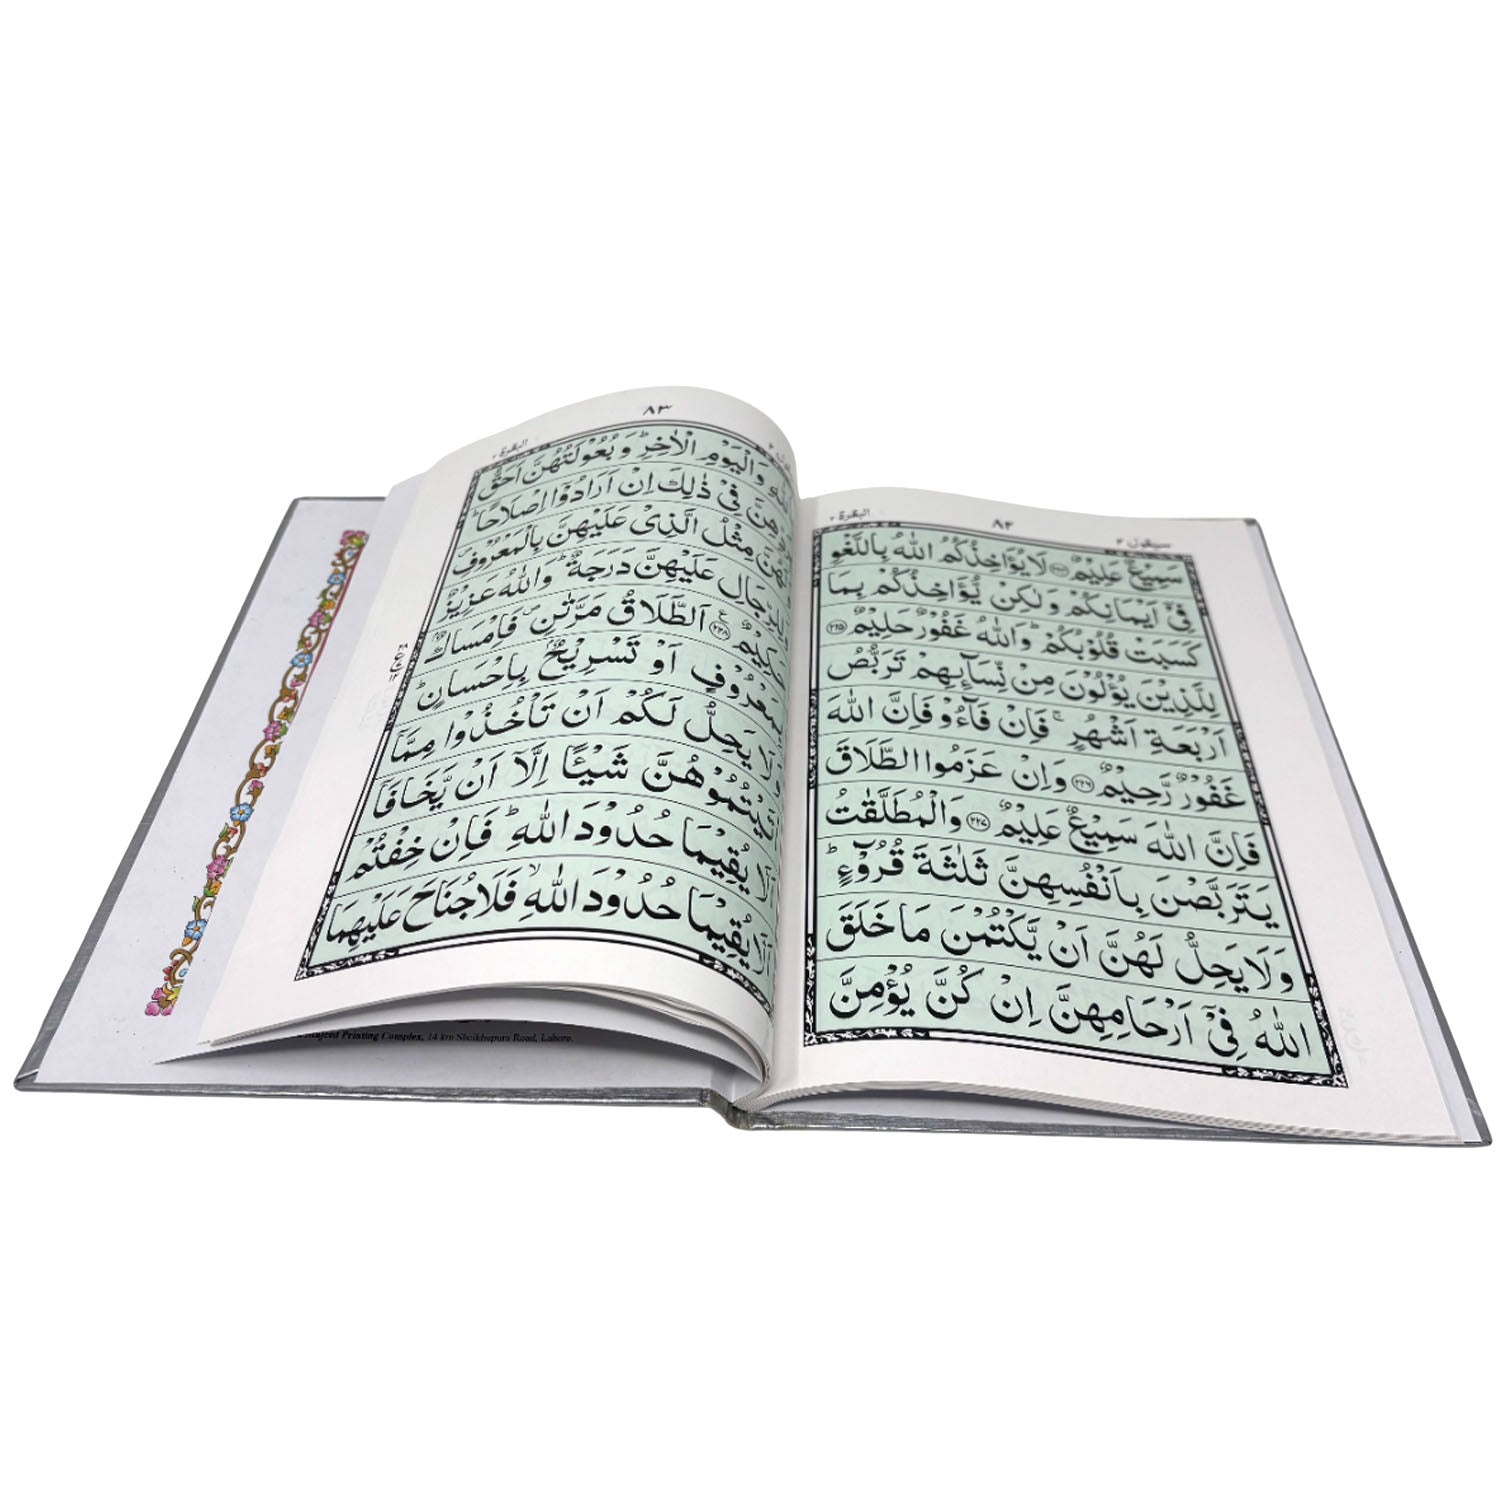 سيقول ٢ ٨٢ البقرة ٢
سَمِيْعٌ عَلِيْمٌ ﴿٢٢٤﴾ لَا يُؤَاخِذُكُمُ اللّٰهُ بِاللَّغْوِ
فِيْٓ اَيْمَانِكُمْ وَلٰكِنْ يُّؤَاخِذُكُمْ بِمَا
كَسَبَتْ قُلُوْبُكُمْ ؕ وَاللّٰهُ غَفُوْرٌ حَلِيْمٌ ﴿٢٢٥﴾
لِلَّذِيْنَ يُؤْلُوْنَ مِنْ نِّسَآىِٕهِمْ تَرَبُّصُ
اَرْبَعَةِ اَشْهُرٍ ۚ فَاِنْ فَآءُوْ فَاِنَّ اللّٰهَ
غَفُوْرٌ رَّحِيْمٌ ﴿٢٢٦﴾ وَاِنْ عَزَمُوا الطَّلَاقَ
فَاِنَّ اللّٰهَ سَمِيْعٌ عَلِيْمٌ ﴿٢٢٧﴾ وَالْمُطَلَّقٰتُ
يَتَرَبَّصْنَ بِاَنْفُسِهِنَّ ثَلٰثَةَ قُرُوْٓءٍ ؕ
وَلَا يَحِلُّ لَهُنَّ اَنْ يَّكْتُمْنَ مَا خَلَقَ
اللّٰهُ فِيْٓ اَرْحَامِهِنَّ اِنْ كُنَّ يُؤْمِنَّ
٨٣ البقرة ٢
وَالْيَوْمِ الْاٰخِرِ ؕ وَبُعُوْلَتُهُنَّ اَحَقُّ
فِيْ ذٰلِكَ اِنْ اَرَادُوْٓا اِصْلَاحًا ؕ
مِثْلُ الَّذِيْ عَلَيْهِنَّ بِالْمَعْرُوْفِ ۪
وَلِلرِّجَالِ عَلَيْهِنَّ دَرَجَةٌ ؕ وَاللّٰهُ عَزِيْزٌ
حَكِيْمٌ ﴿٢٢٨﴾ اَلطَّلَاقُ مَرَّتٰنِ ۪ فَاِمْسَاكٌۢ
بِمَعْرُوْفٍ اَوْ تَسْرِيْحٌۢ بِاِحْسَانٍ ؕ
وَلَا يَحِلُّ لَكُمْ اَنْ تَاْخُذُوْا مِمَّآ
اٰتَيْتُمُوْهُنَّ شَيْـًٔا اِلَّآ اَنْ يَّخَافَآ
اَلَّا يُقِيْمَا حُدُوْدَ اللّٰهِ ؕ فَاِنْ خِفْتُمْ
اَلَّا يُقِيْمَا حُدُوْدَ اللّٰهِ ۙ فَلَا جُنَاحَ عَلَيْهِمَا
Printing Complex, 14 km Sheikhupura Road, Lahore.